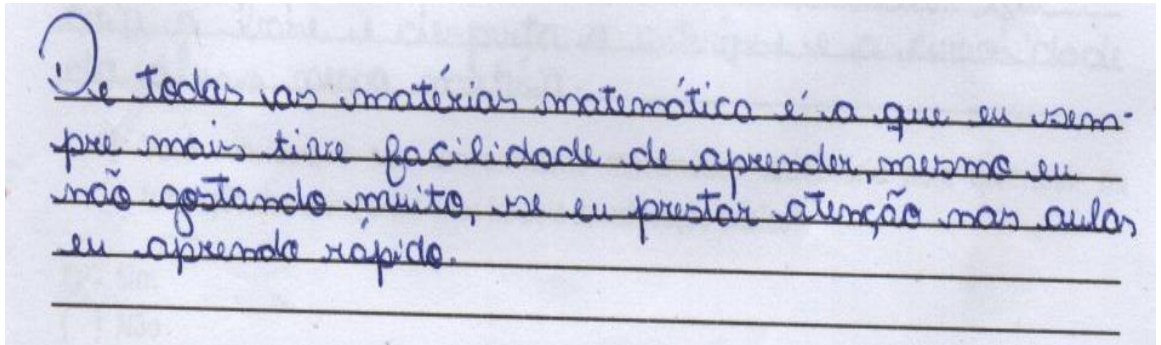 De todas as matérias matemática é a que eu sem-
pre mais tive facilidade de aprender, mesmo eu
não gostando muito, se eu prestar atenção nas aulas
eu aprendo rápido.